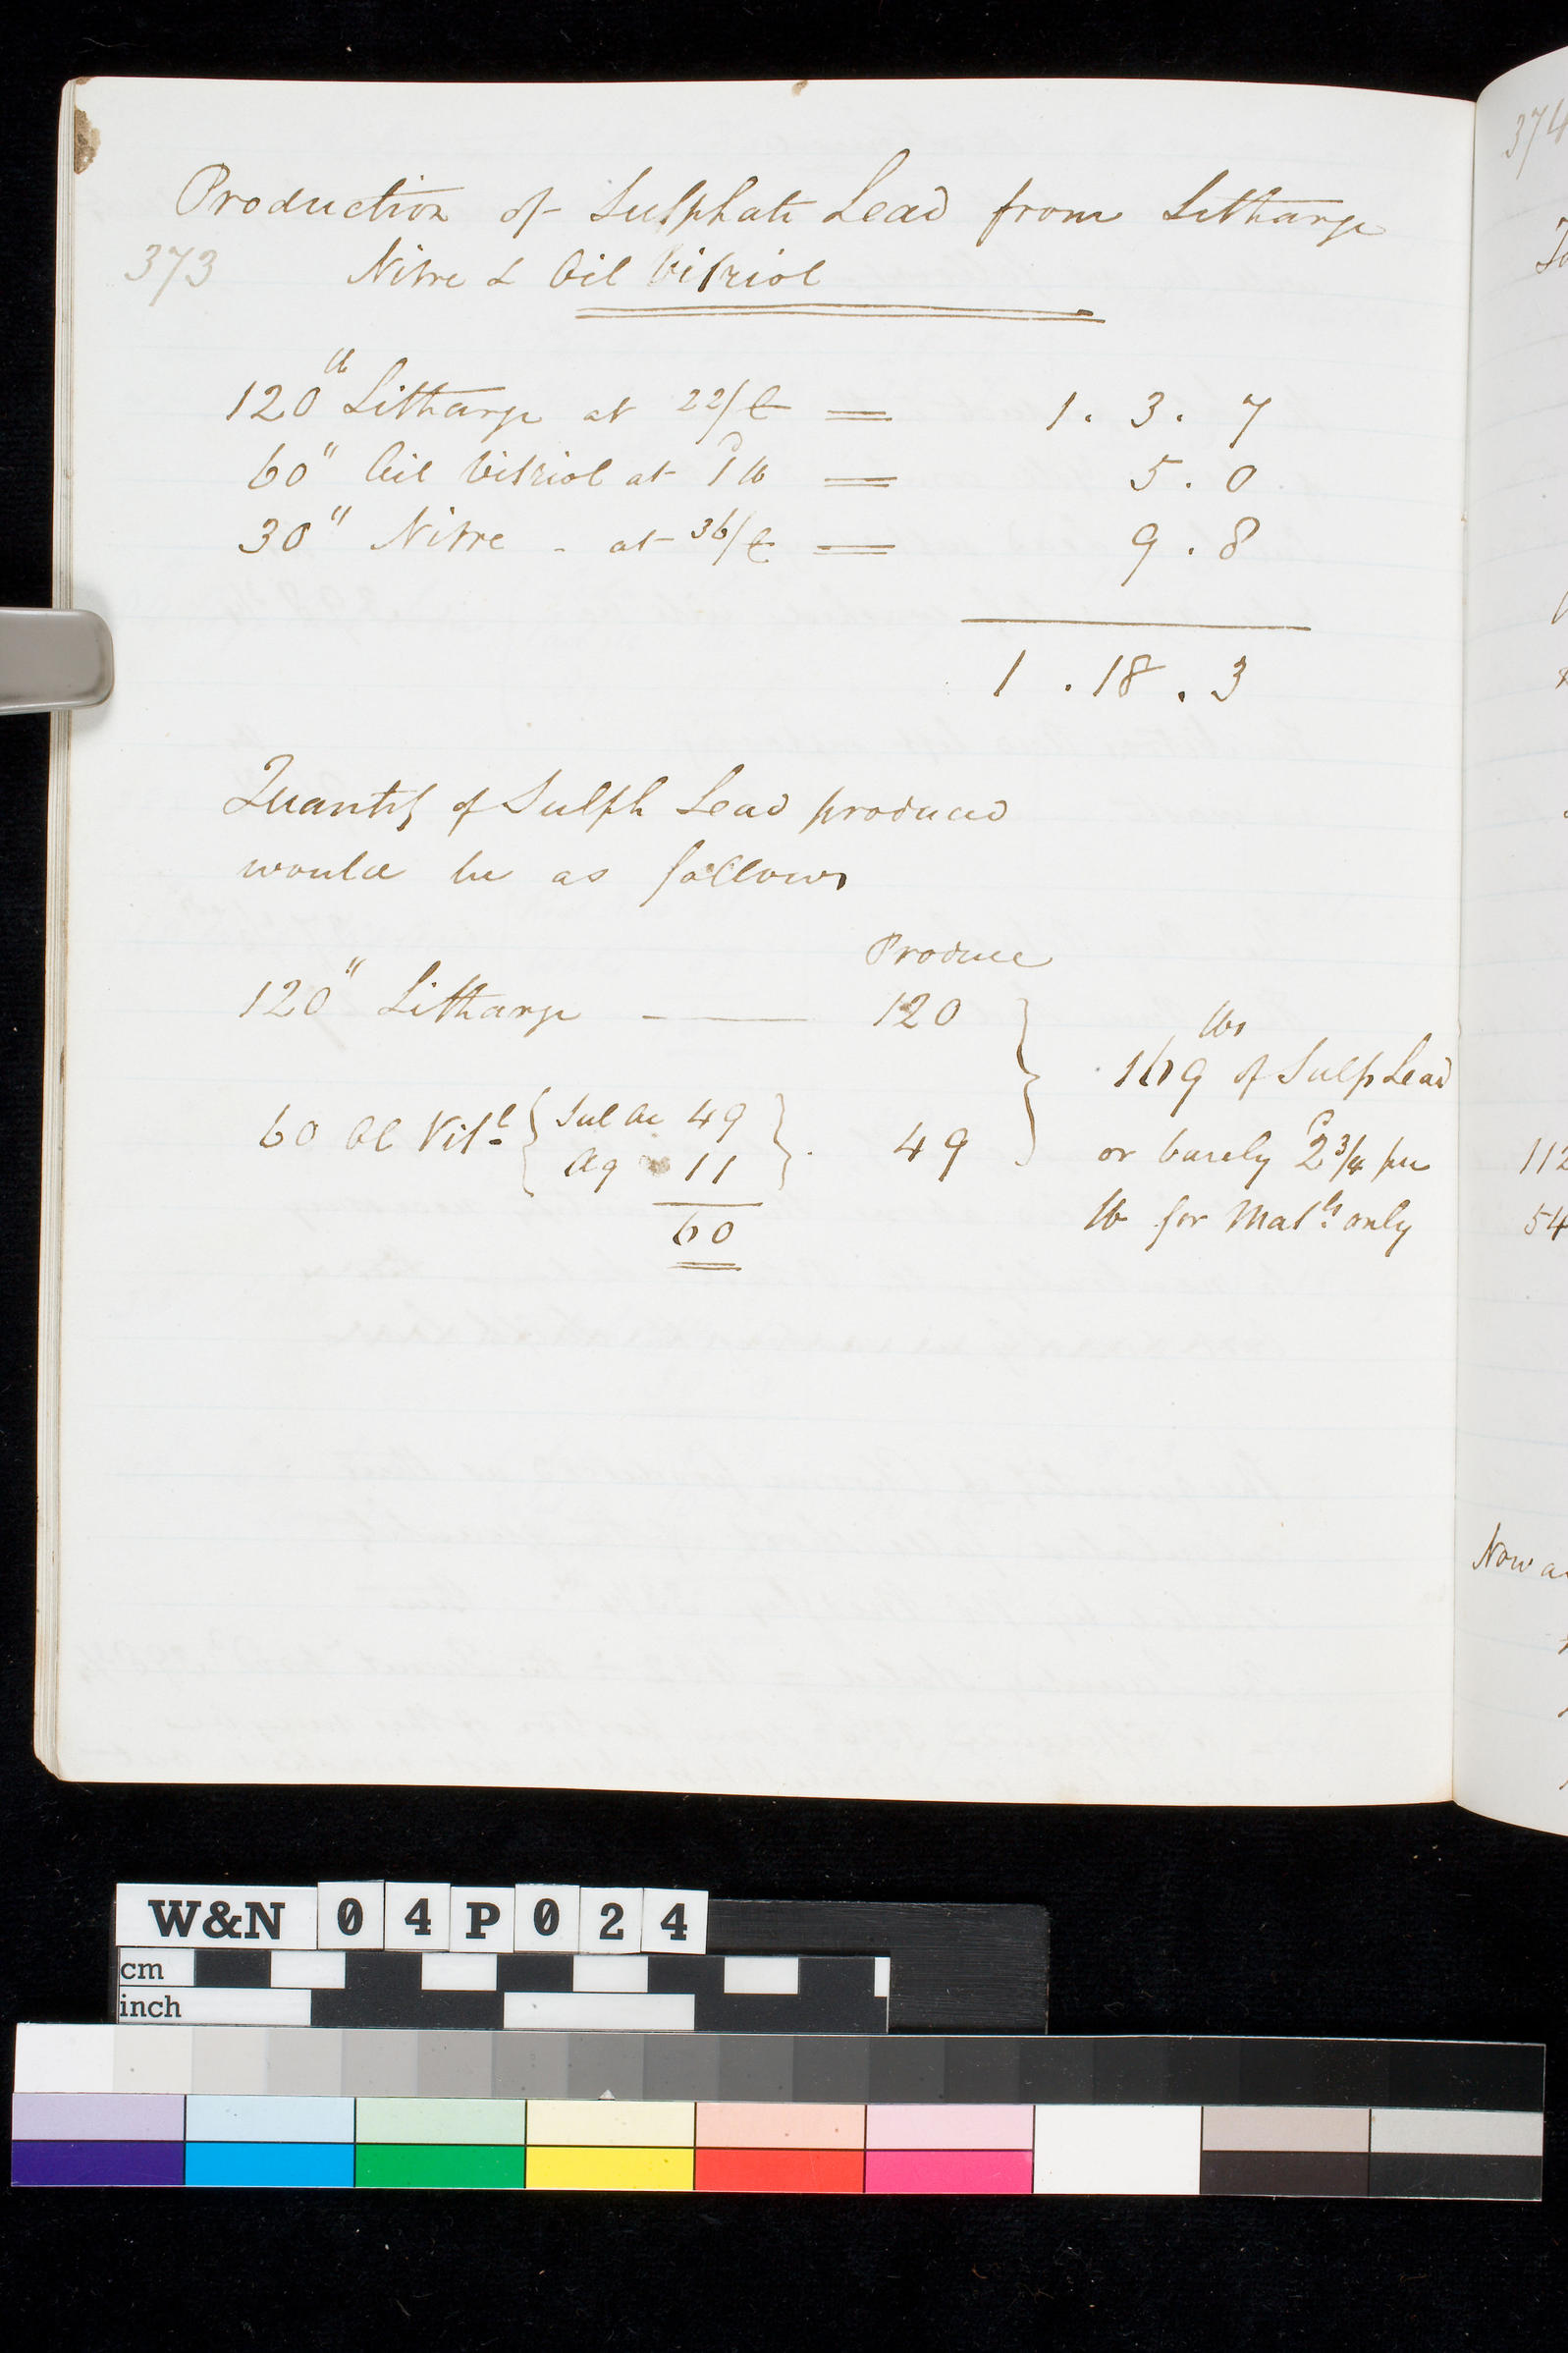 Production of Sulphate Lead from Litharge
373 Nitre & Oil Vitriol
120 lb Litharge at 22/C = 1 . 3 . 7
60 " Oil Vitriol at 1d lb = 5 . 0
30 " Nitre - at 36/C = 9 . 8
1 . 18 . 3
Quantity of Sulph Lead produced
would be as follows
Produce
120 " Litharge — 120
lbs
169 of Sulph Lead
60 Ol Vitl { Sul Ac 49 } 49
Aq 11
or barely 2d 3/4 per
60
lb for Matls only
374
112
54
Now a
W&N 04P024
cm
inch